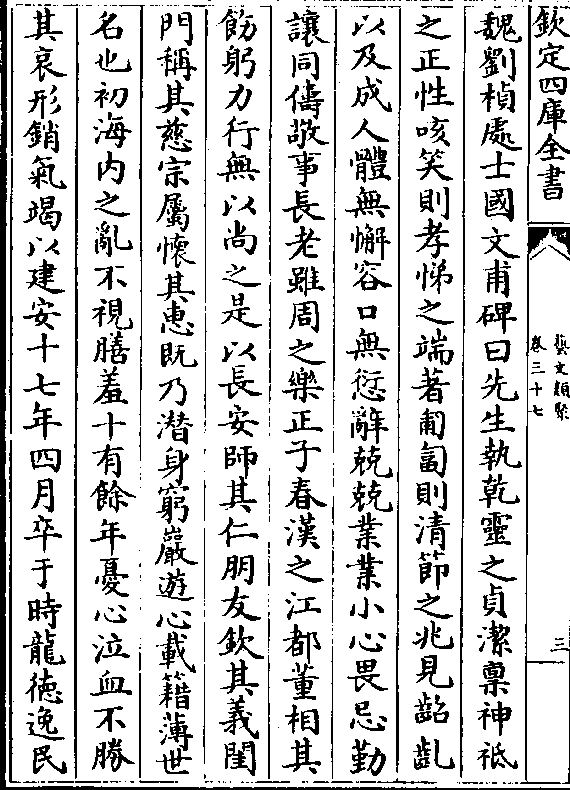 欽定四庫全書
藝文類聚
卷三十七
三
魏劉楨處士國文甫碑曰先生執乾靈之貞潔稟神祗
之正性咳笑則孝悌之端著匍匐則清節之兆見齠齓
以及成人體無懈容口無愆辭兢兢業業小心畏忌勤
讓同儔敬事長老雖周之樂正子春漢之江都董相其
飭躬力行無以尚之是以長安師其仁朋友欽其義閨
門稱其慈宗屬懷其惠既乃潛身窮巖遊心載籍薄世
名也初海內之亂不視膳羞十有餘年憂心泣血不勝
其哀形銷氣竭以建安十七年四月卒于時龍德逸民